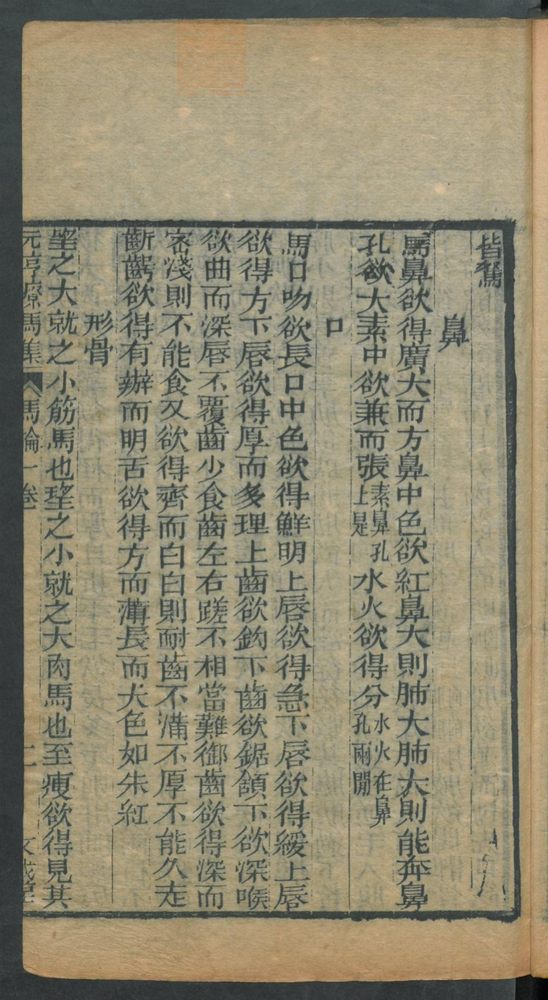 皆駑
鼻
馬鼻欲得廣大而方鼻中色欲紅鼻大則肺大肺大則能奔鼻
孔欲大素中欲兼而張素鼻孔上是水火欲得分水火在鼻孔兩閒
口
馬口吻欲長口中色欲得鮮明上唇欲得急下唇欲得緩上唇
欲得方下唇欲得厚而多理上齒欲鈎下齒欲鋸頷下欲深喉
欲曲而深唇不覆齒少食齒左右蹉不相當難御齒欲得深而
密淺則不能食又欲得齊而白白則耐齒不滿不厚不能久走
齗齶欲得有辦而明舌欲得方而薄長而大色如朱紅
形骨
望之大就之小筋馬也望之小就之大肉馬也至瘦欲得見其
元亨療馬集 馬論一卷 二